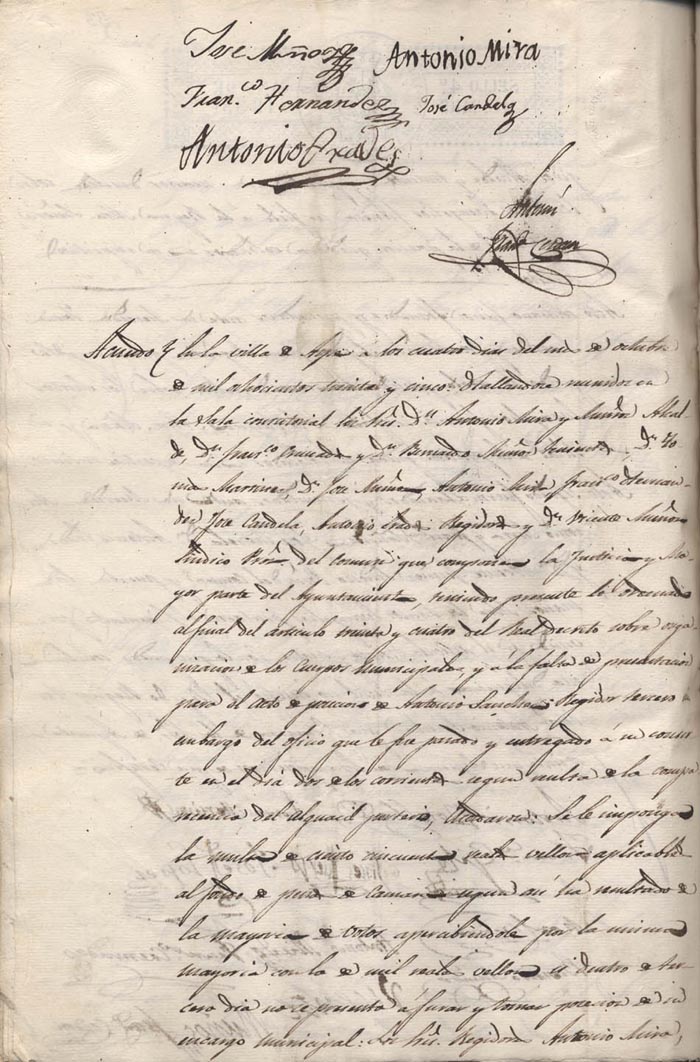 Jose Muñoz Antonio Mira
Fran.co Hernandez José Candela
Antonio Prades
Antemi
Acuerdo En la villa de Aspe a los cuatro dias del mes de octubre
de mil ochocientos treinta y cinco: Hallandose reunidos en
la Sala consistorial los Sres. Dn. Antonio Mira y Muñoz Alcal
de, Dn. Franco y Dn. Bernardo Muñoz Tenientes, Dn. To
mas Martinez, Dn. Jose Muñoz, Antonio Mira, Franco Hernan
dez, Jose Candela, Antonio Prades Regidores y Dn. Vicente Muñoz
Sindico Pror. del Comun que componen la Justicia y Ma
yor parte del Ayuntamiento, teniendo presente lo ordenado
al final del articulo treinta y cuatro del Real decreto sobre orga
nizacion de los Cuerpos Municipales, y á la falta de presentacion
para el acto de posicion de Antonio Sanchez Regidor tercero
embargo del oficio que le fue pasado y entregado á su consor
te en el dia dos de los corrientes segun resulta de la compa
recencia del alguacil portero, Acordaron: Se le imponga
la multa de ciento cincuenta reales vellon aplicables
al fondo de penas de Camara segun asi ha resultado de
la mayoria de votos apercibiendole por la misma
mayoria con la de mil reales vellon si dentro de ter
cero dia no se presenta á jurar y tomar posecion de su
encargo municipal: Los Sres. Regidores Antonio Mira,